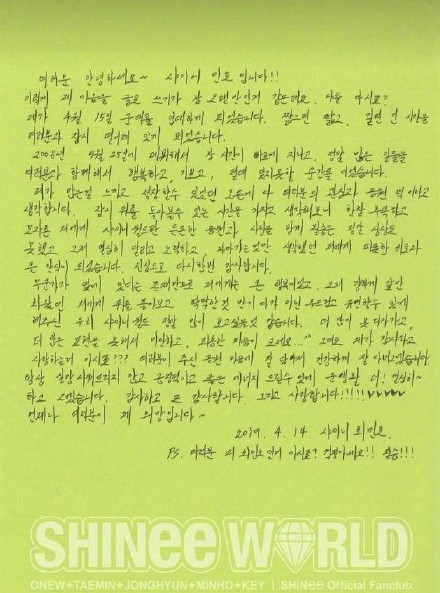 여러분 안녕하세요~ 샤이니 민호 입니다!!
이렇게 제 마음을 글로 쓰기가 참 오랜만인거 같은데요. 다들 아시죠?
제가 4월 15일 군악을 입대하게 되었습니다. 짧으면 짧고, 길면 긴 시간을
여러분과 잠시 떨어져 있게 되었습니다.
2008년 5월 25일에 데뷔해서 참 시간이 빠르게 지나고, 정말 많은 일들을
여러분과 함께해서 행복하고, 기쁘고, 절대 잊지못할 순간들 이었습니다.
제가 많은걸 느끼고 성장할수 있었던 모든게 다 여러분의 관심과 응원 덕이라고
생각합니다. 잠시 뒤를 돌아볼수 있는 시간을 가지고 생각해보니 한참 부족하고
모자란 저에게 샤이니월드란 든든한 응원과, 사랑을 받게 될줄은 정말 상상도
못했고, 그저 열심히 달리고 노력하고, 나아가는것만 생각했던 저에게 따뜻한 위로와
큰 안식이 되었습니다. 진심으로 다시한번 감사합니다.
누군가가 옆에 있다는 존재만으로 저에게는 큰 행복이었고, 그저 강하게 앞만
저에게 뒤를 돌아보고 딱딱한것 만이 아닌 부드럽고 유연할수 있게
해주신 우리 샤이니월드 정말 많이 보고싶을것 같습니다. 더 많이 못 다가가고,
더 많은 표현을 못해서 미안하고, 죄송한 마음이 드네요.. 그래도 제가 감사하고
사랑하는거 아시죠??? 여러분이 주신 응원 마음에 잘 담아서 건강하게 잘 다녀오겠습니다.
항상 실망시켜드리지 않고 긍정적이고 좋은 에너지 드릴수 있게 군생활 더! 열심히~
하고 오겠습니다. 감사하고 또 감사합니다. 그리고 사랑합니다!!!!!
언제나 여러분이 제 희망입니다~
2019. 4. 14 샤이니 최민호.
P.S. 여러분 저 최민호인거 아시죠? 걱정마세요!! 필승!!!
SHINee WORLD
ONEW+TAEMIN+JONGHYUN+MINHO+KEY | SHINee Official Fanclub